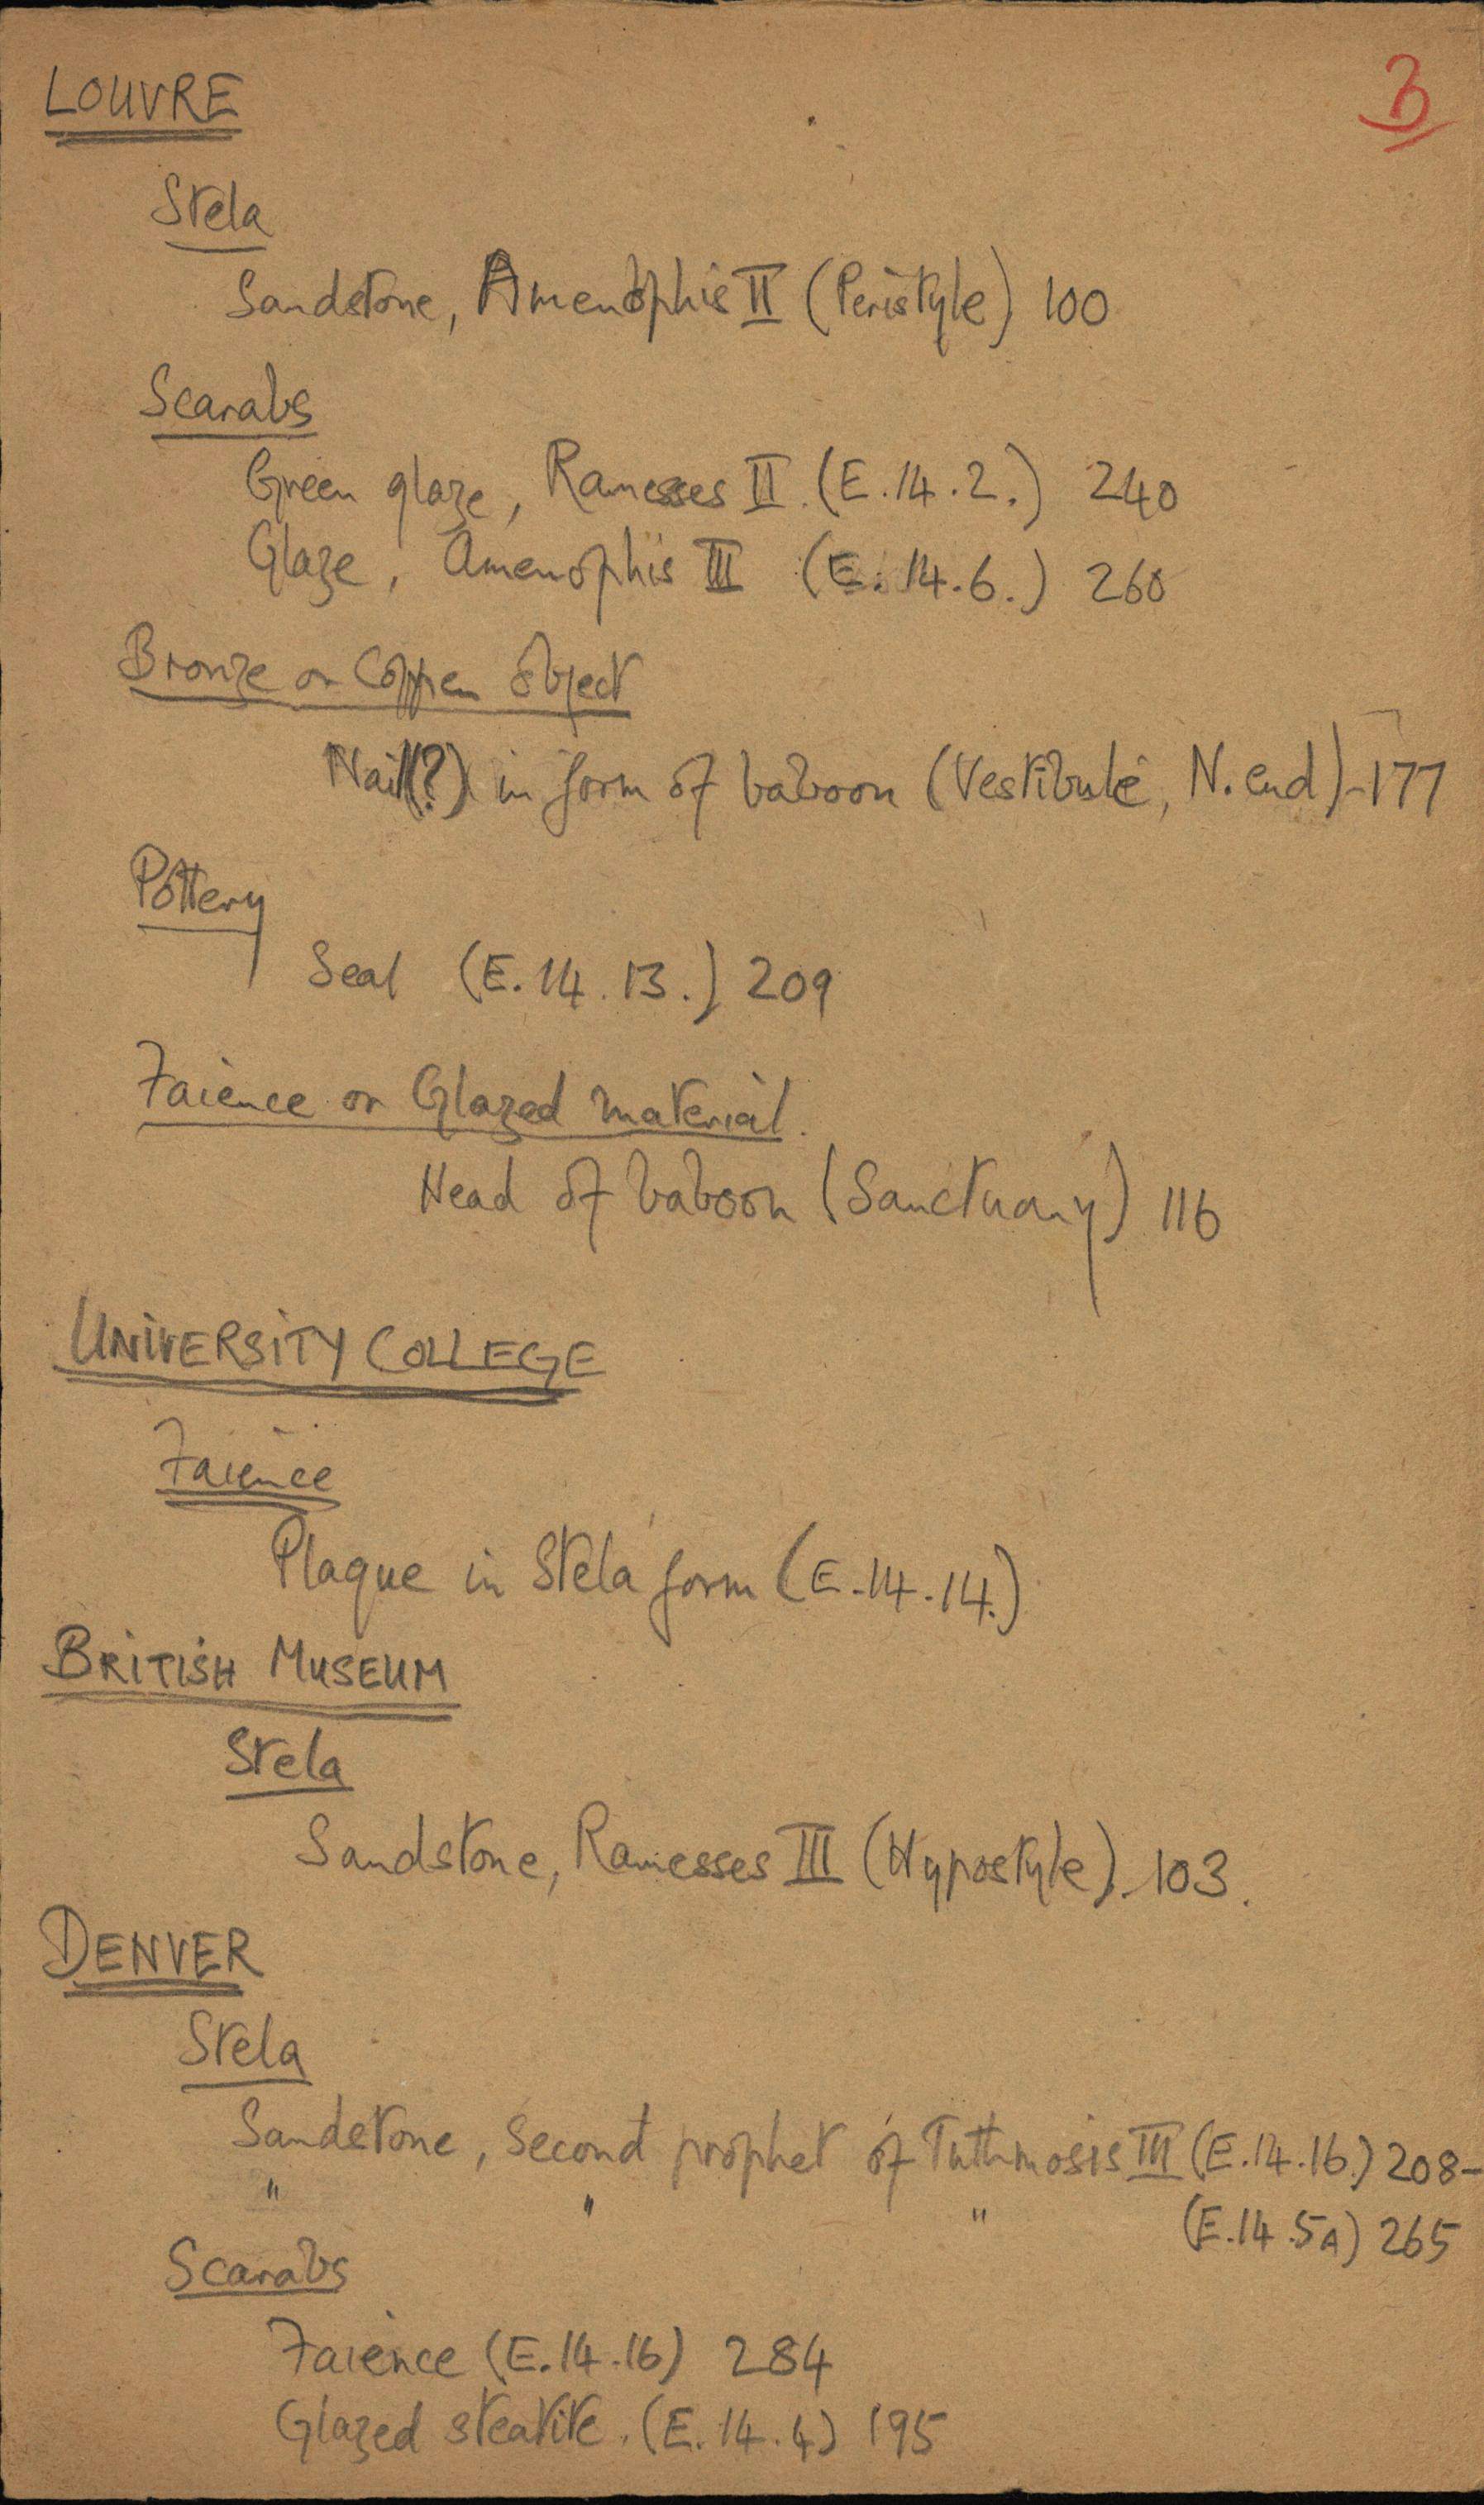 3
LOUVRE
Stela
Sandstone, Amenophis II (Peristyle) 100
Scarabs
Green glaze, Ramesses II. (E.14.2.) 240
Glaze, Amenophis III (E.14.6.) 260
Bronze or Copper Object
Nail(?) in form of baboon (Vestibule, N. end) - 177
Pottery
Seal (E.14.13.) 209
Faience or Glazed material.
Head of baboon (Sanctuary) 116
UNIVERSITY COLLEGE
Faience
Plaque in Stela form (E.14.14.)
BRITISH MUSEUM
Stela
Sandstone, Ramesses III (Hypostyle). 103.
DENVER
Stela
Sandstone, Second prophet of Tuthmosis III (E.14.16.) 208-
" " " (E.14.5A) 265
Scarabs
Faience (E.14.16) 284
Glazed steatite. (E.14.4) 195